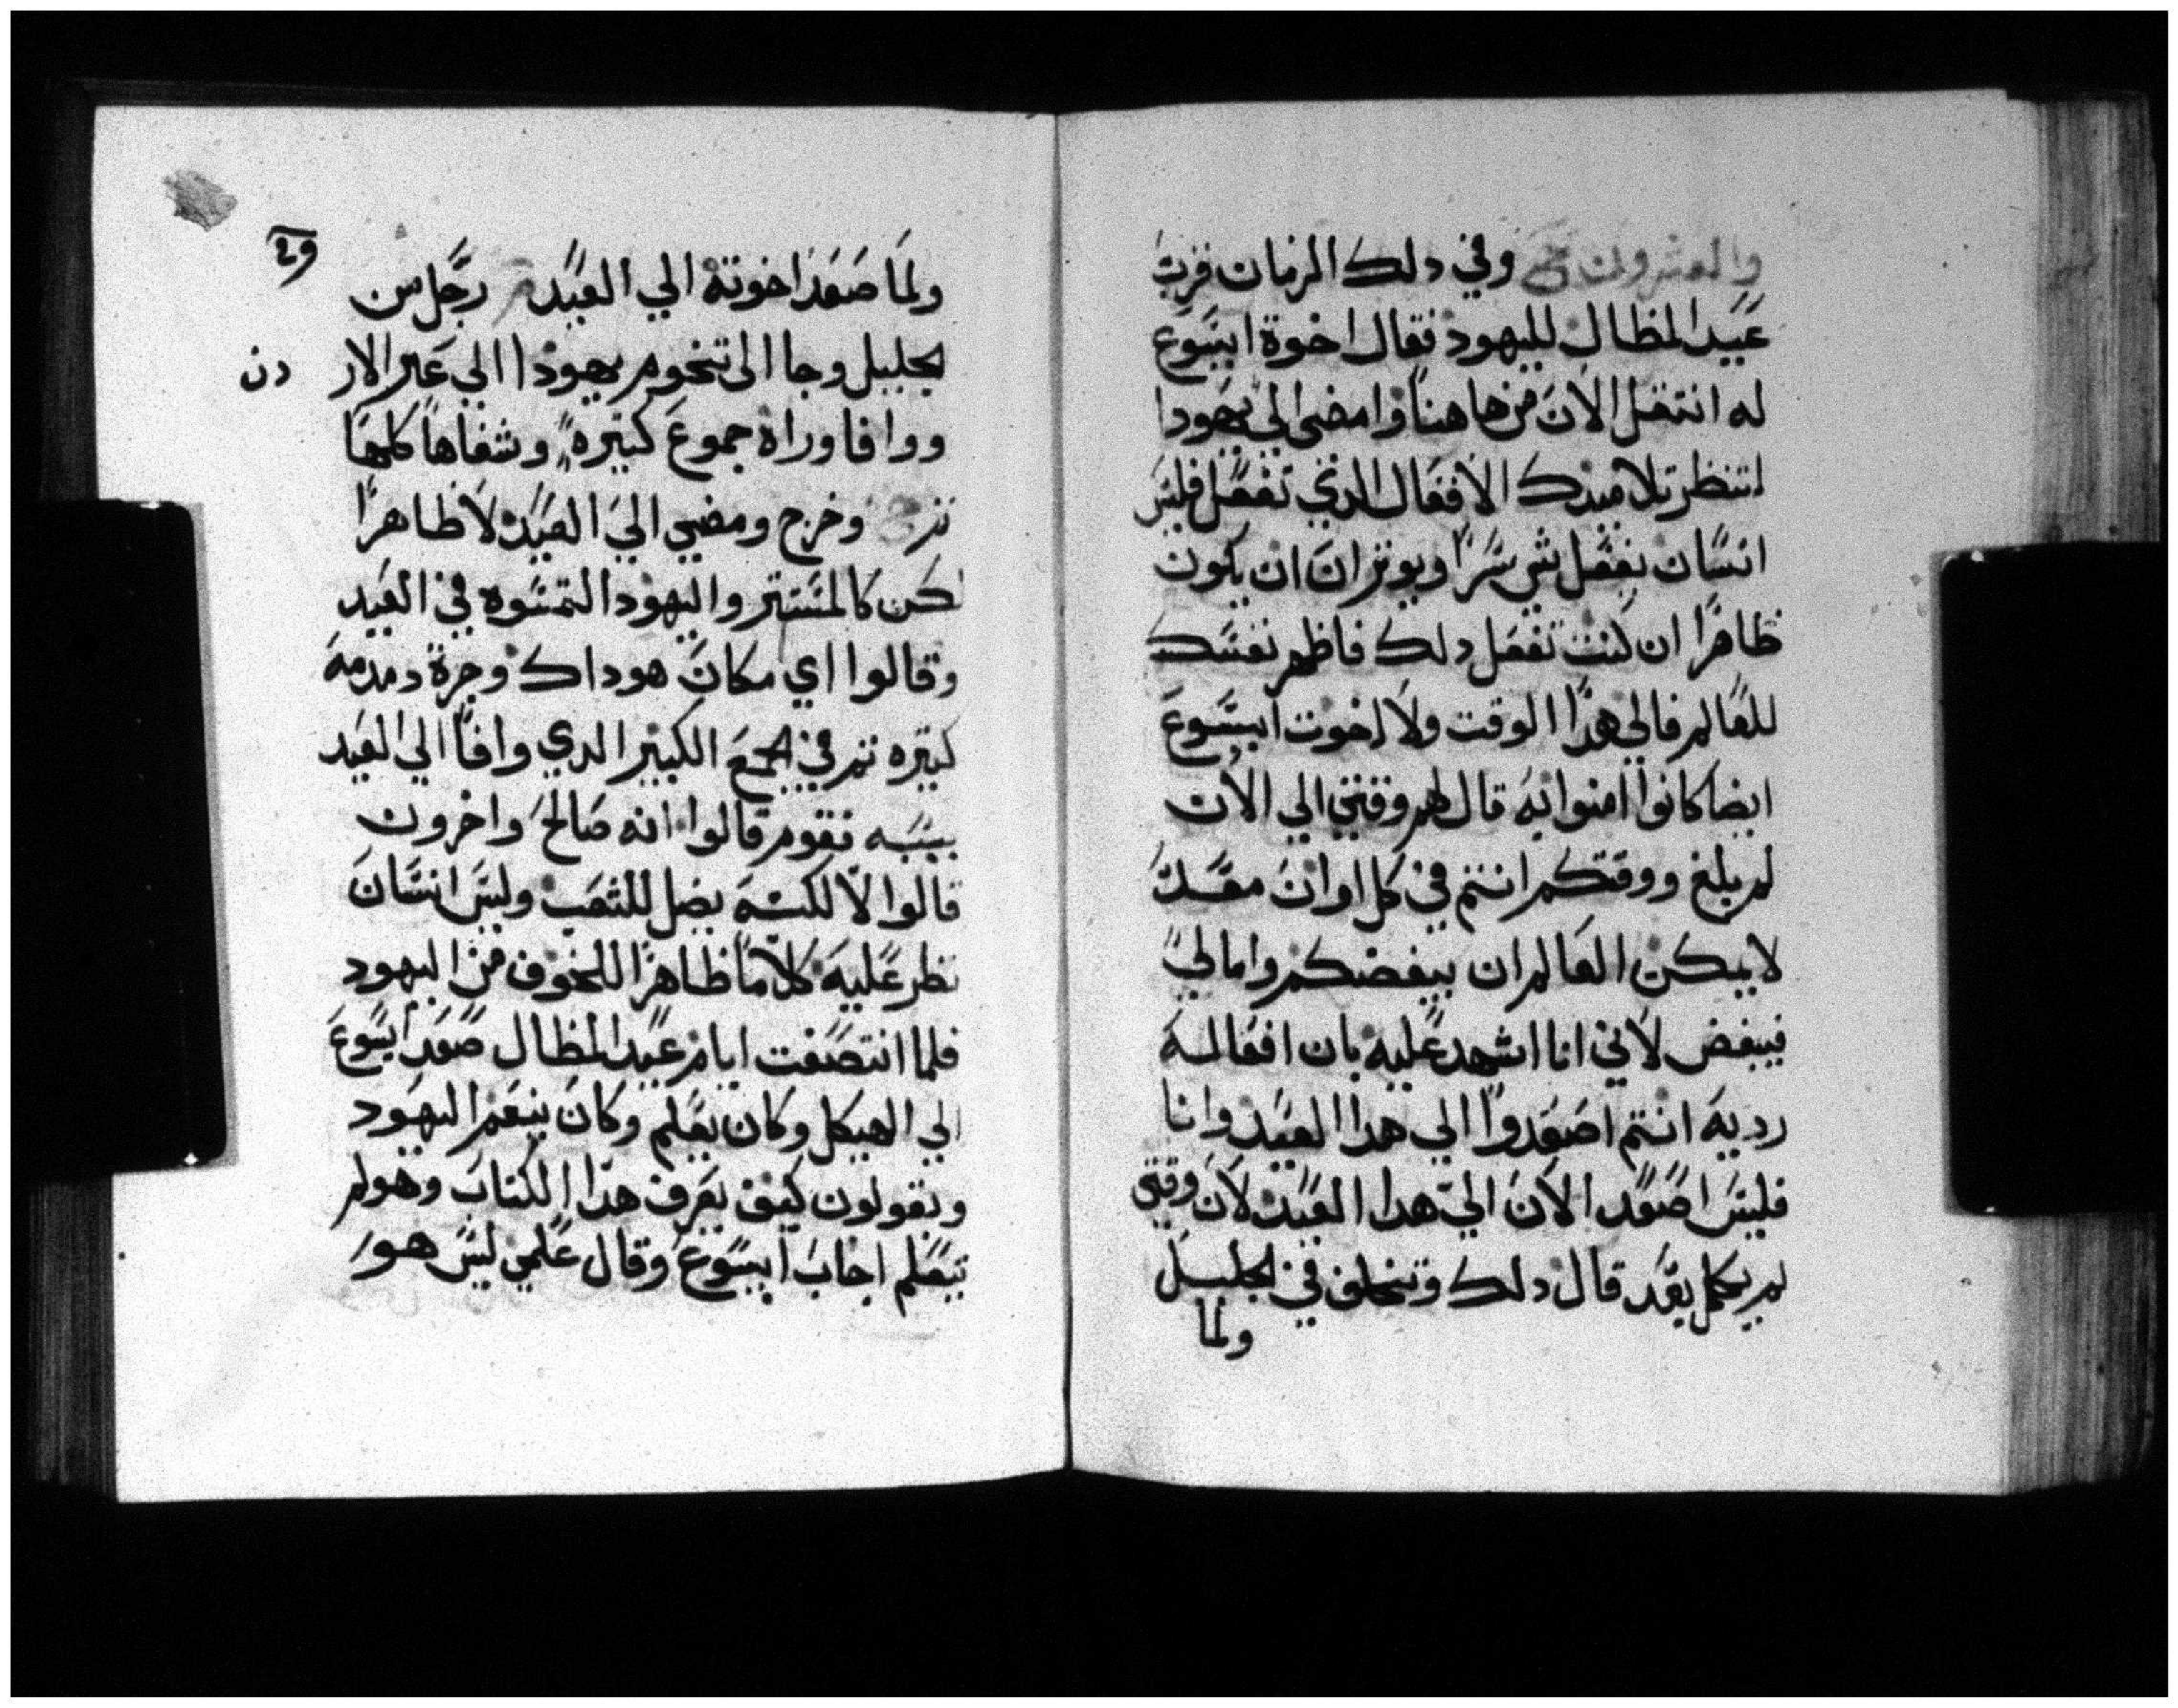 والعشرون وفي دلك الزمان قرب
عيد المظال لليهود فقال اخوة ايسوع
له انتقل الان من هاهنا وامضي الي يهودا
لتنظر تلاميدك الافعال الدي تفعل فليس
انسان يفعل شي سرا ويوتر ان ان يكون
ظاهرا ان كنت تفعل دلك فاظهر نفسك
للعالم فالي هدا الوقت ولا اخوت ايسوع
ايضا كانوا امنوا به قال لهم وقتي الي الان
لم يبلغ ووقتكم انتم في كل اوان معد
لا يمكن العالم ان يبغضكم واما لي
فيبغض لاني انا اشهد عليه بان افعاله
رديه انتم اصعدوا الي هدا العيد وانا
فليس اصعد الان الي هدا العيد لان وقتي
لم يكمل بعد قال دلك وتخلف في الجليل
ولما
و٢
ولما صعد اخوته الي العيد رجل من
الجليل وجا الى تخوم يهودا الي عبر الار دن
ووافا وراه جموع كتيره وشفاها كلها
تم وخرج ومضي الي العيد لا ظاهرا
لكن كالمستتر واليهود التمسوه في العيد
وقالوا اي مكان هو داك وجرة دمدمه
كتيره تم في الجمع الكبير الدي وافا الي العيد
بسببه فقوم قالوا انه صالح واخرون
قالوا لا لكنه يضل للشعب وليس انسان
نظر عليه كلاما ظاهرا للخوف من اليهود
فلما انتصفت ايام عيد المظال صعد ايسوع
الي الهيكل وكان يعلم وكان يتعجم اليهود
ويقولون كيف يعرف هدا الكتاب وهو لم
يتعلم اجاب ايسوع وقال علمي ليس هو